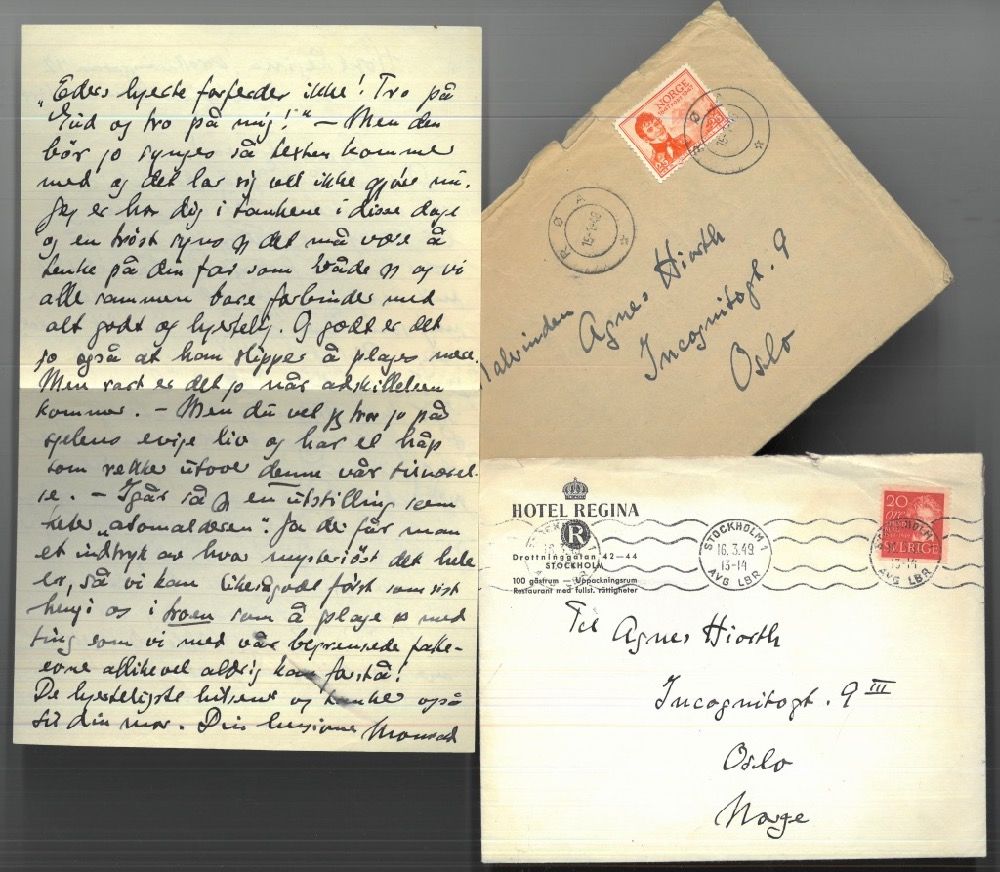 "Eders hjerte forferder ikke! Tro på
Gud og tro på mig!" – Men den
bør jo synges så texten kommer
med og det lar sig vell ikke gjøre nu.
Jeg er hos dig i tankene i disse dage
og en trøst synes jeg det må være å
tenke på din far som både jeg og vi
alle sammen bare forbinder med
alt godt og hjertelig. Og godt er det
jo også at han slipper å plages mere.
Men rart er det jo når adskillelsen
kommer. – Men du vet jeg tror jo på
sjelens evige liv og har et håp
som rekker utover denne vår tilværel-
se. – Igår så jeg en utstilling som
heter "atomalderen". Ja der får man
et indtryk av hvor mysteriøst det hele
er, så vi kan likesågodt først som sist
hengi os i troen som å plage os med
ting som vi med vår begrensede fatte-
evne allikevel aldrig kan forstå!
De hjerteligste hilsener og tenker også
til din mor. Din hengivne Monrad
NORGE
25
RØA
15-1-48
RØA
15-1-48
Malerinden
Agnes Hiorth
Incognitogt. 9
Oslo
HOTEL REGINA
R
Drottninggatan 42–44
STOCKHOLM
100 gästrum – Uppackningsrum
Restaurant med fullst. rättigheter
STOCKHOLM 1
16.3.49
13-14
AVG LBR
20
ÖRE
SVERIGE
Til Agnes Hiorth
Incognitogt. 9 III
Oslo
Norge